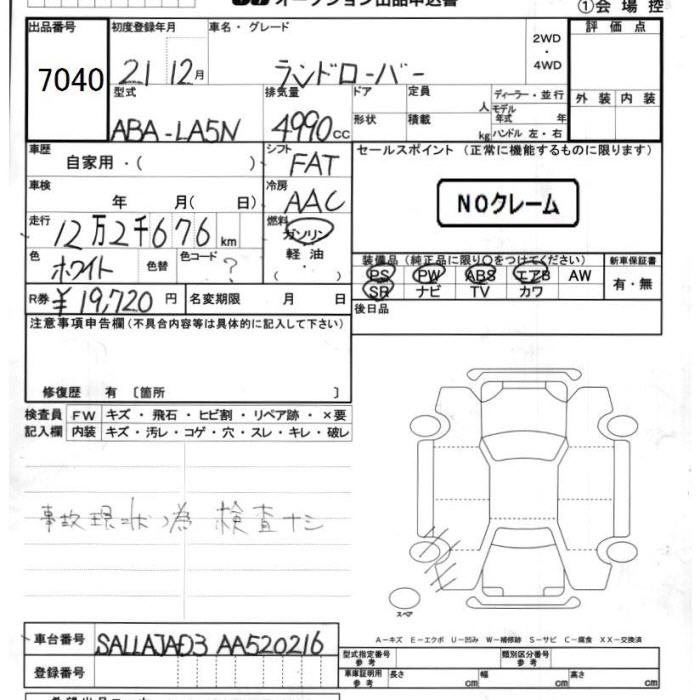 オークション出品申込書
①会場控
出品番号 初度登録年月 車名・グレード 評価点
7040 21 12月 ランドローバー 2WD・4WD
型式 排気量 ドア 定員 人 ディーラー・並行 外装 内装
ABA-LA5N 4990cc 形状 積載 kg モデル年式 年 ハンドル 左・右
車歴 シフト セールスポイント (正常に機能するものに限ります)
自家用・( ) FAT
車検 年 月( 日) 冷房 AAC
NOクレーム
走行 12万2千676km 燃料 ガソリン 軽油・( )
色 ホワイト 色替 色コード ?
装備品 (純正品に限り○をつけてください) 新車保証書
PS PW ABS エアB AW 有・無
SR ナビ TV カワ
R券 ¥19,720円 名変期限 月 日
後日品
注意事項申告欄(不具合内容等は具体的に記入して下さい)
修復歴 有〔箇所 〕
検査員 FW キズ・飛石・ヒビ割・リペア跡・×要
記入欄 内装 キズ・汚レ・コゲ・穴・スレ・キレ・破レ
事故現状ノ為 検査ナシ
スペア
A-キズ E-エクボ U-凹み W-補修跡 S-サビ C-腐食 XX-交換済
車台番号 SALLAJAD3 AA520216
型式指定番号 参考 類別区分番号 参考
登録番号
車庫証明用 参考 長さ cm 幅 cm 高さ cm
希望出品コーナー